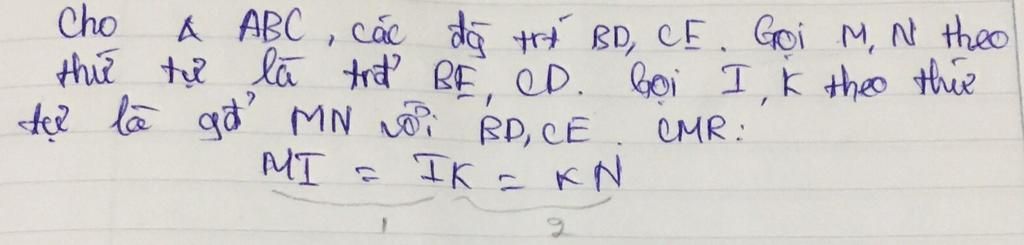 Cho Δ ABC, các đg trt BD, CE. Gọi M, N theo
thứ tự là trđ BE, CD. Gọi I, K theo thứ
tự là gđ MN với BD, CE. CMR:
MI = IK = KN
1 2